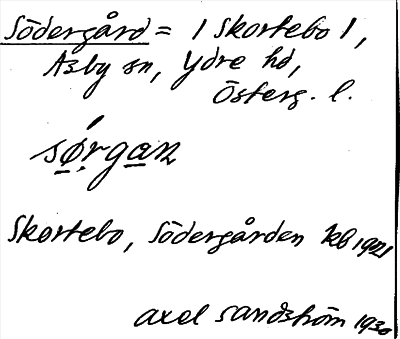 Södergård = 1 Skortebo 1,
Asby sn, Ydre hd,
Österg. l.
sørgan
Skortebo, Södergården kb 1921
Axel Sandström 1930